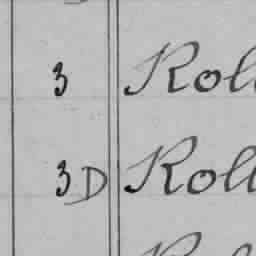 3 Roll
3D Roll